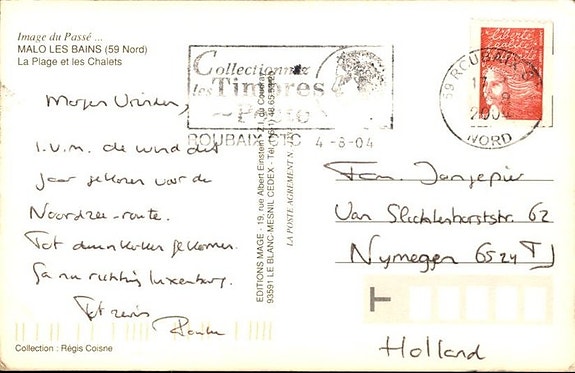 Image du Passé ...
MALO LES BAINS (59 Nord)
La Plage et les Chalets
Morgen Vrienden,
I.v.m. de wind dit
jaar gekozen voor de
Noordzee-route.
Tot duinkerken gekomen.
Ga nu richting Luxemburg.
Tot ziens
Collection : Régis Coisne
Collectionnez
les Timbres
Poste
ROUBAIX CTC 4-8-04
EDITIONS MAGE - 19, rue Albert Einstein - Z.I. du Coudray
93591 LE BLANC-MESNIL CEDEX - Tél.
LA POSTE AGREMENT N
liberté
égalité
59 ROUBAIX
2004
NORD
Fam. Jansepier
Van Slichtenhorststr. 62
Nymegen 6524 TJ
T
Holland